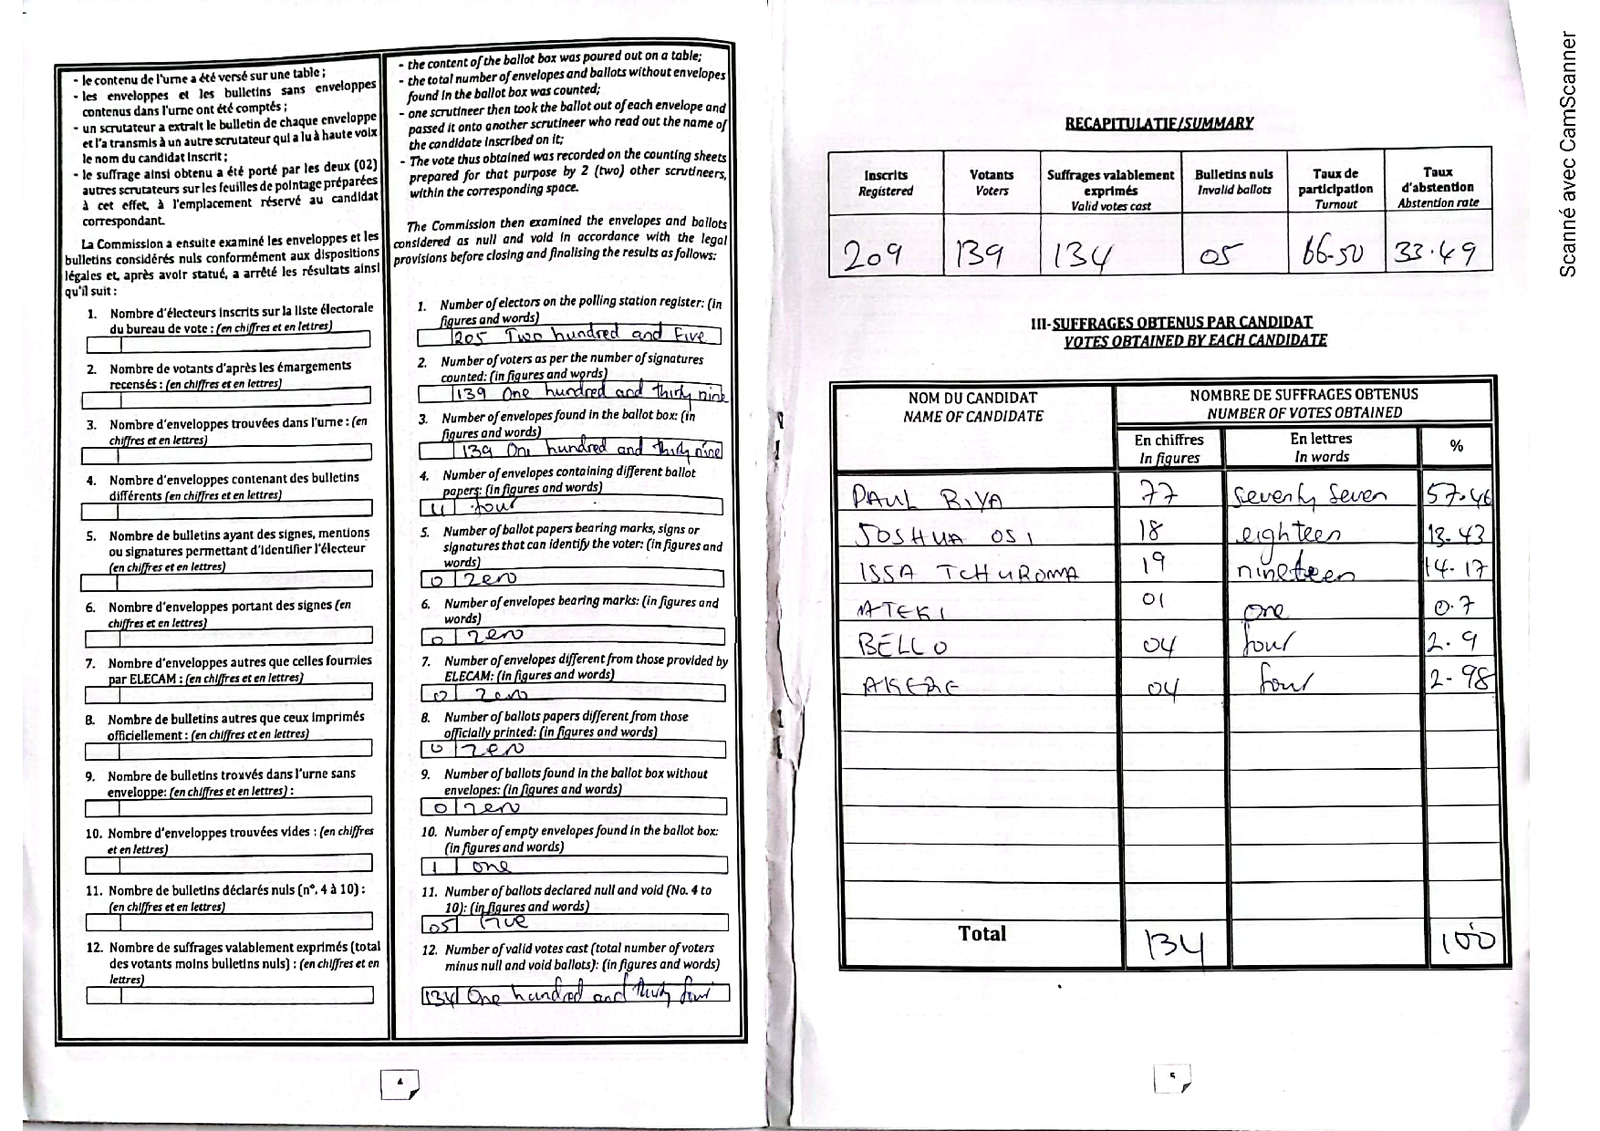 - le contenu de l'urne a été versé sur une table ;
- les enveloppes et les bulletins sans enveloppes
contenus dans l'urne ont été comptés ;
- un scrutateur a extrait le bulletin de chaque enveloppe
et l'a transmis à un autre scrutateur qui a lu à haute voix
le nom du candidat inscrit ;
- le suffrage ainsi obtenu a été porté par les deux (02)
autres scrutateurs sur les feuilles de pointage préparées
à cet effet, à l'emplacement réservé au candidat
correspondant.
La Commission a ensuite examiné les enveloppes et les
bulletins considérés nuls conformément aux dispositions
légales et, après avoir statué, a arrêté les résultats ainsi
qu'il suit :
1. Nombre d'électeurs inscrits sur la liste électorale
du bureau de vote : (en chiffres et en lettres)
2. Nombre de votants d'après les émargements
recensés : (en chiffres et en lettres)
3. Nombre d'enveloppes trouvées dans l'urne : (en
chiffres et en lettres)
4. Nombre d'enveloppes contenant des bulletins
différents (en chiffres et en lettres)
5. Nombre de bulletins ayant des signes, mentions
ou signatures permettant d'identifier l'électeur
(en chiffres et en lettres)
6. Nombre d'enveloppes portant des signes (en
chiffres et en lettres)
7. Nombre d'enveloppes autres que celles fournies
par ELECAM : (en chiffres et en lettres)
8. Nombre de bulletins autres que ceux imprimés
officiellement : (en chiffres et en lettres)
9. Nombre de bulletins trouvés dans l'urne sans
enveloppe: (en chiffres et en lettres) :
10. Nombre d'enveloppes trouvées vides : (en chiffres
et en lettres)
11. Nombre de bulletins déclarés nuls (n°. 4 à 10) :
(en chiffres et en lettres)
12. Nombre de suffrages valablement exprimés (total
des votants moins bulletins nuls) : (en chiffres et en
lettres)
- the content of the ballot box was poured out on a table;
- the total number of envelopes and ballots without envelopes
found in the ballot box was counted;
- one scrutineer then took the ballot out of each envelope and
passed it onto another scrutineer who read out the name of
the candidate inscribed on it;
- The vote thus obtained was recorded on the counting sheets
prepared for that purpose by 2 (two) other scrutineers,
within the corresponding space.
The Commission then examined the envelopes and ballots
considered as null and void in accordance with the legal
provisions before closing and finalising the results as follows:
1. Number of electors on the polling station register: (in
figures and words)
205 Two hundred and Five
2. Number of voters as per the number of signatures
counted: (in figures and words)
139 One hundred and thirty nine
3. Number of envelopes found in the ballot box: (in
figures and words)
139 One hundred and thirty nine
4. Number of envelopes containing different ballot
papers: (in figures and words)
4 four
5. Number of ballot papers bearing marks, signs or
signatures that can identify the voter: (in figures and
words)
0 zero
6. Number of envelopes bearing marks: (in figures and
words)
0 zero
7. Number of envelopes different from those provided by
ELECAM: (in figures and words)
0 zero
8. Number of ballots papers different from those
officially printed: (in figures and words)
0 zero
9. Number of ballots found in the ballot box without
envelopes: (in figures and words)
0 zero
10. Number of empty envelopes found in the ballot box:
(in figures and words)
1 one
11. Number of ballots declared null and void (No. 4 to
10): (in figures and words)
05 five
12. Number of valid votes cast (total number of voters
minus null and void ballots): (in figures and words)
134 One hundred and thirty four
4
RECAPITULATIF/SUMMARY
Inscrits Registered Votants Voters Suffrages valablement exprimés Valid votes cast Bulletins nuls Invalid ballots Taux de participation Turnout Taux d'abstention Abstention rate
209 139 134 05 66.50 33.49
III-SUFFRAGES OBTENUS PAR CANDIDAT
VOTES OBTAINED BY EACH CANDIDATE
NOM DU CANDIDAT NOMBRE DE SUFFRAGES OBTENUS
NAME OF CANDIDATE NUMBER OF VOTES OBTAINED
En chiffres En lettres %
In figures In words
PAUL BIYA 77 seventy seven 57.46
JOSHUA OSI 18 eighteen 13.43
ISSA TCHUROMA 19 nineteen 14.17
ATEKI 01 one 0.7
BELLO 04 four 2.9
AKERE 04 four 2.98
Total 134 100
5
Scanné avec CamScanner